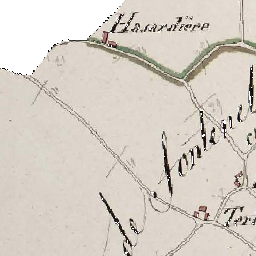 Hasardière
de Fontenel
Ter